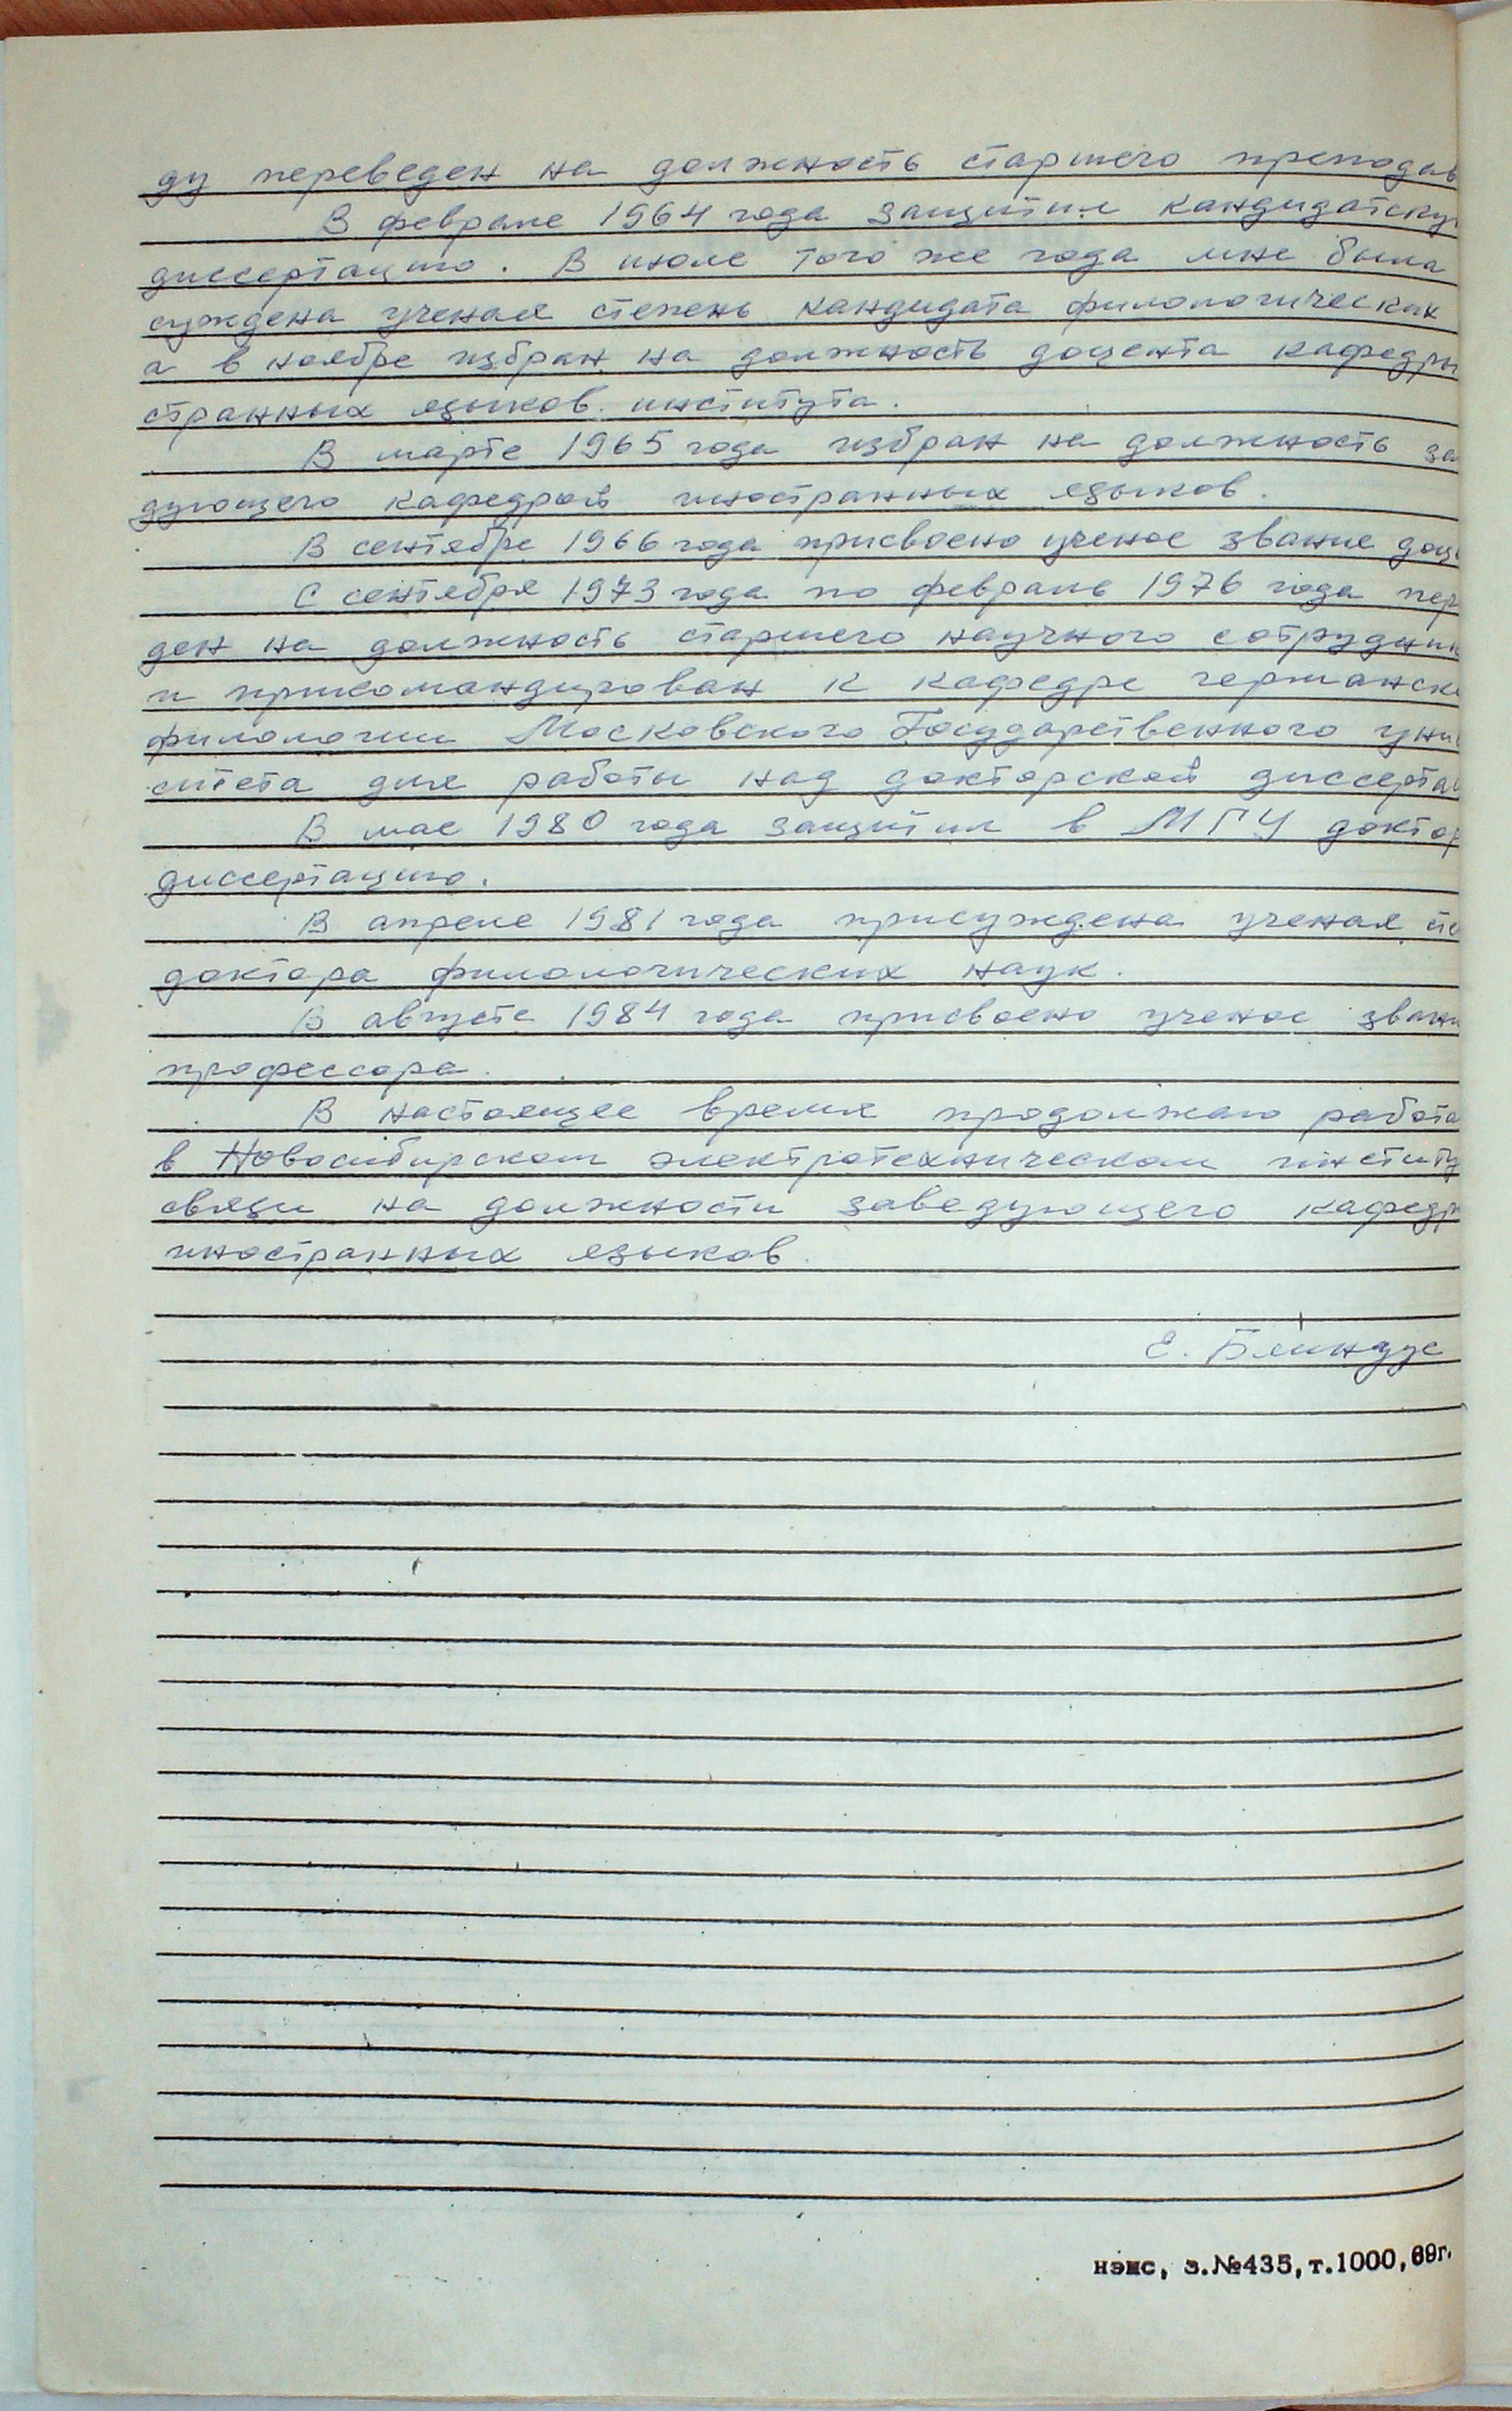 ду переведен на должность старшего преподав
В феврале 1964 года защитил кандидатску
диссертацию. В июле того же года мне была
суждена ученая степень кандидата филологических
а в ноябре избран на должность доцента кафедры
странных языков института.
В марте 1965 года избран на должность за
дующего кафедрой иностранных языков.
В сентябре 1966 года присвоено ученое звание доц
С сентября 1973 года по февраль 1976 года пер
ден на должность старшего научного сотрудник
и прикомандирован к кафедре германск
филологии Московского Государственного уни
ситета для работы над докторской диссертац
В мае 1980 года защитил в МГУ доктор
диссертацию.
В апреле 1981 года присуждена ученая сте
доктора филологических наук.
В августе 1984 года присвоено ученое звани
профессора.
В настоящее время продолжаю работа
в Новосибирском электротехническом институ
связи на должности заведующего кафедр
иностранных языков.
Е. Блиндус
нэис, з.№435, т.1000, 69г.